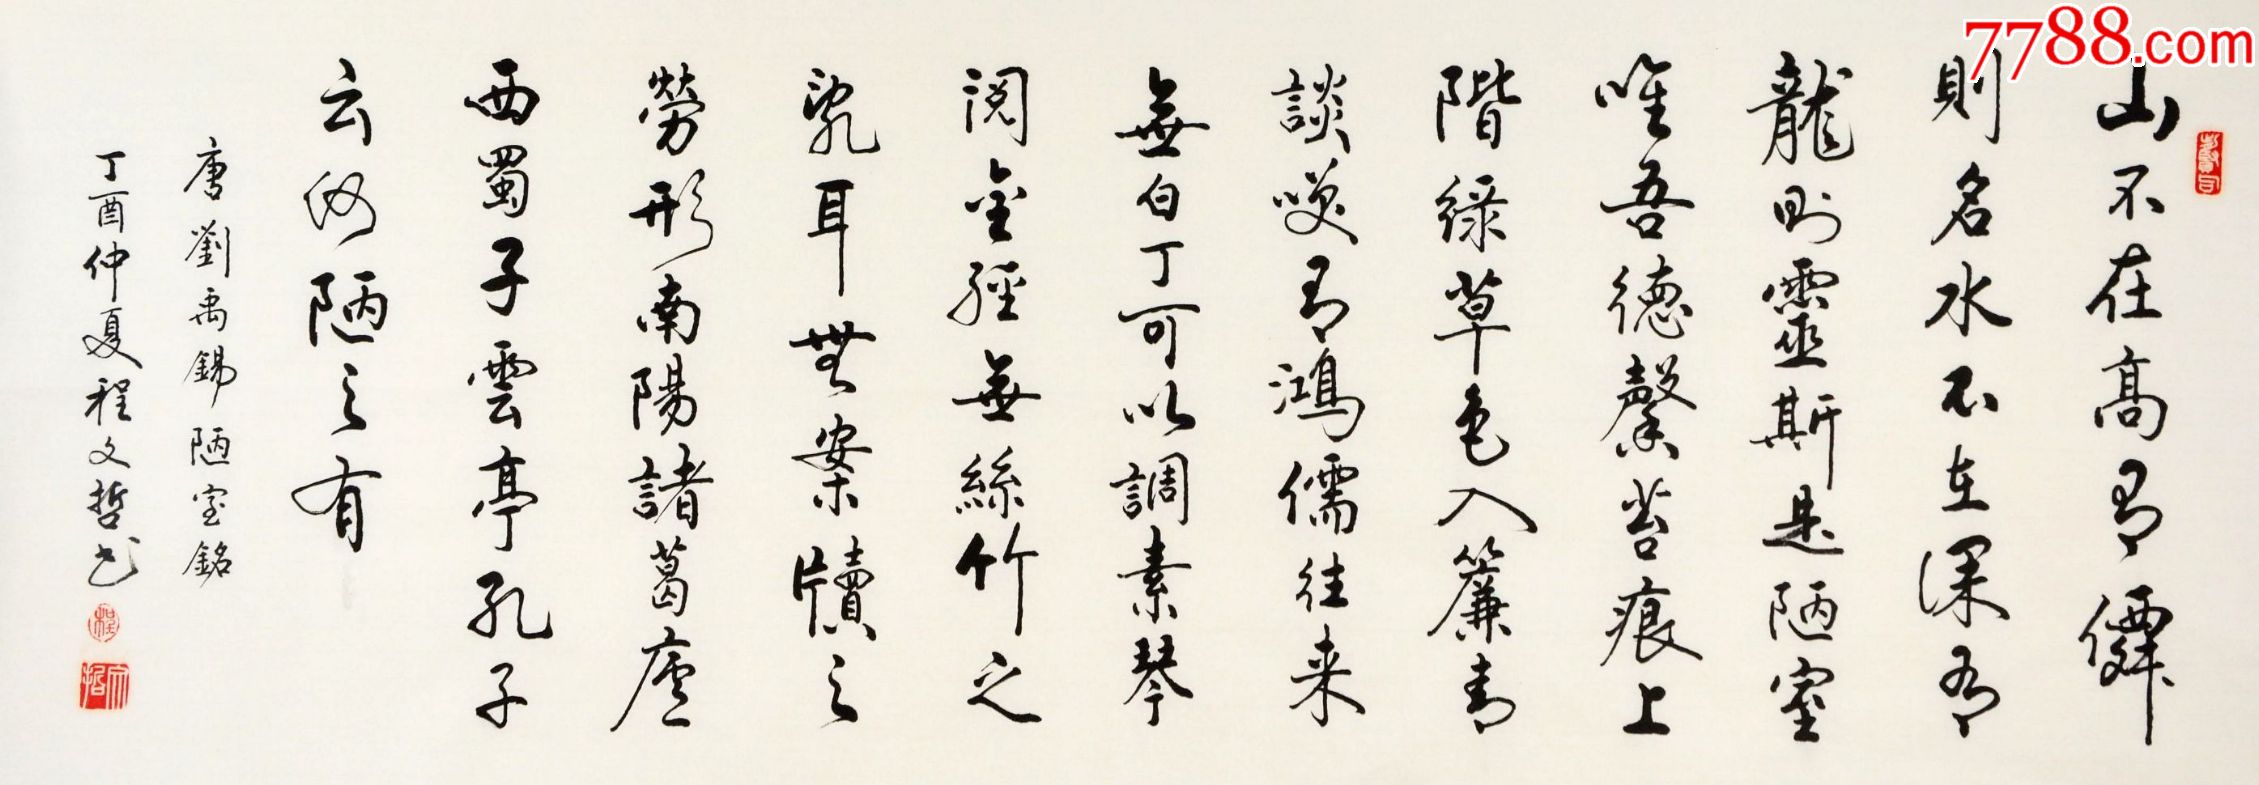 7788.com
山不在高有僊
則名水不在深有
龍則靈斯是陋室
唯吾德馨苔痕上
階綠草色入簾青
談咲有鴻儒往来
無白丁可以調素琴
閱金經無絲竹之
乱耳無案牘之
勞形南陽諸葛廬
西蜀子雲亭孔子
云何陋之有
唐劉禹錫陋室銘
丁酉仲夏程文哲书
程
文哲